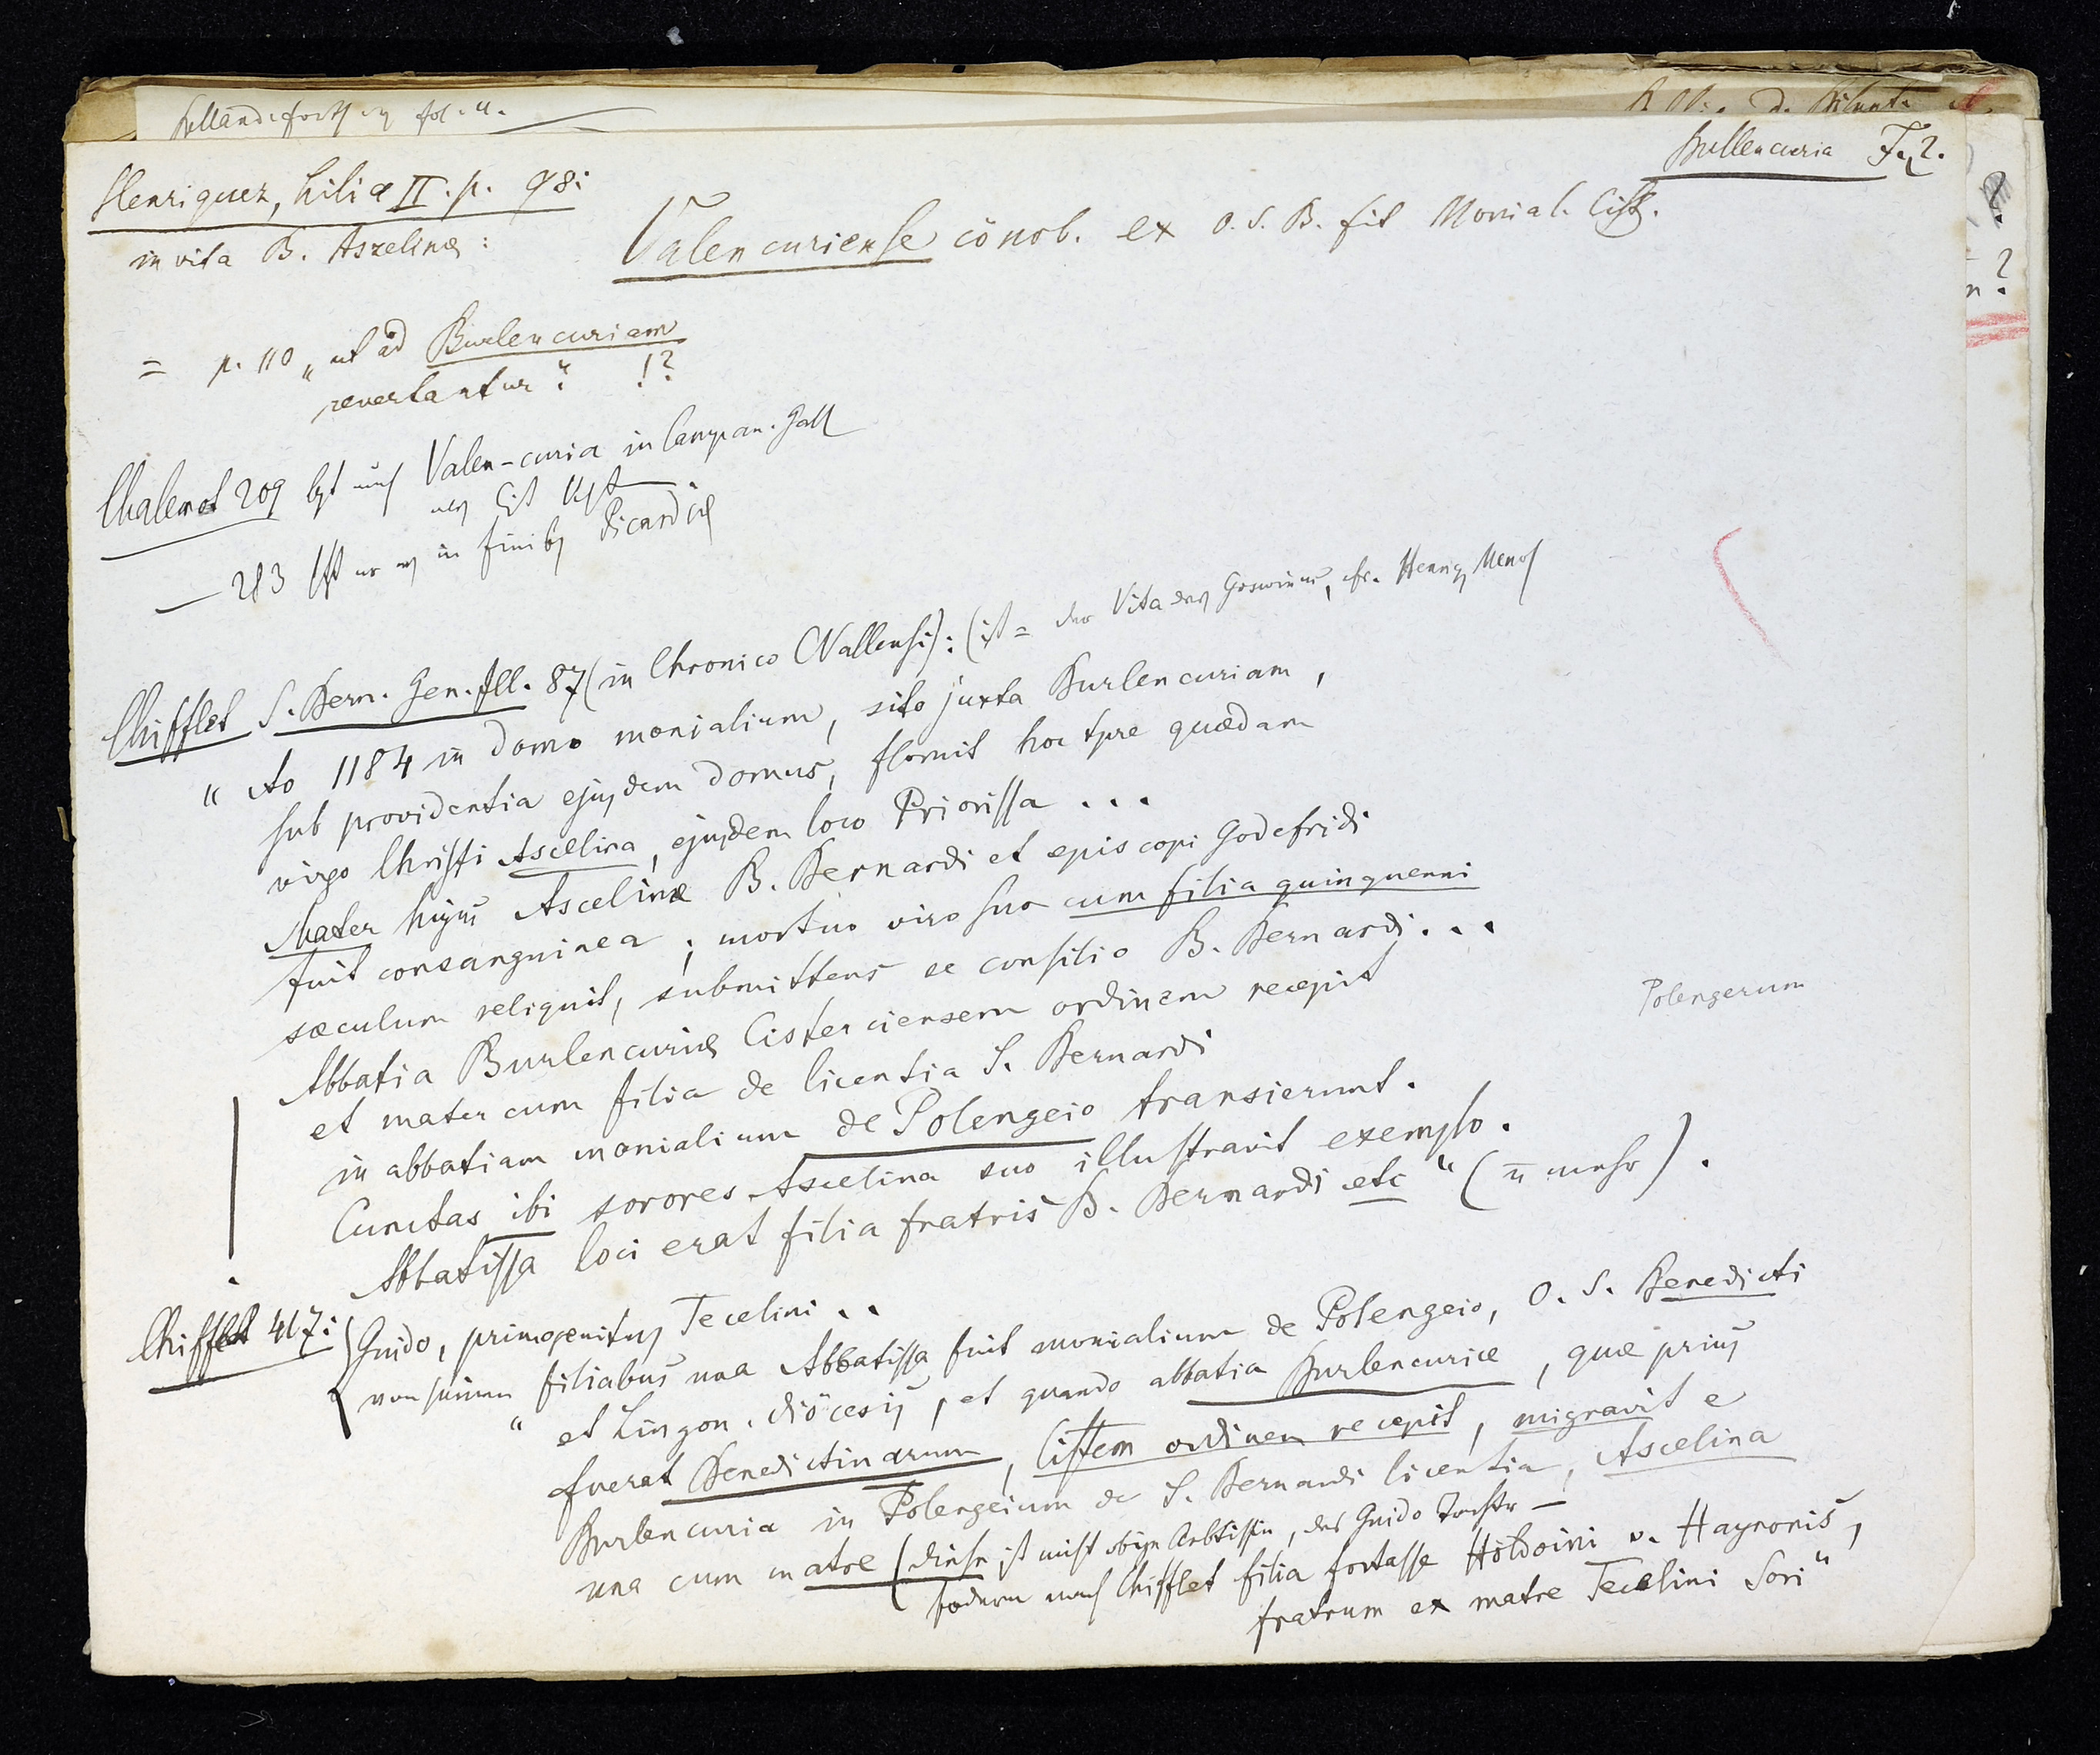 Bullencuria F. 2.
Henriquez, Lilia II. p. 98:
in vita B. Aszelinæ:
Valencuriense cönob. ex O. S. B. fit Monial. Cist.
= p. 110 „ut ad Burlencuriam
revertantur“ !?
Chalemot 209 Valen-curia in Campan. Gall
— 283 in finibq Picardiæ
Chifflet S. Bern. Gen. Ill. 87 (in Chronico CVallensi): (ist = der Vita des Goswinus, cfr. Henriq Menol
" Ao 1184 in domo monialium, sito juxta Burlencuriam,
sub providentia ejusdem domus, floruit hoc tpre quædam
virgo Christi Ascelina, ejusdem loco Priorissa ...
Mater hujus Ascelinæ B. Bernardi et episcopi Godefridi
fuit consanguinea; mortuo viro suo cum filia quinquenni
sæculum reliquit, submittens se consilio B. Bernardi...
Abbatia Burlencuriæ Cisterciensem ordinem recepit
Polengerum
et mater cum filia de licentia S. Bernardi
in abbatiam monialium de Polengeio transierunt.
Cunctas ibi sorores Ascelina suo illustravit exemplo.
Abbatissa loci erat filia fratris B. Bernardi etc “ (u mehr).
Chifflet 417: Guido, primogenitus Tecelini..
von seinen filiabus una Abbatissa fuit monialium de Polengeio, O. S. Benedicti
" et Lingon. diöcesis, et quando abbatia Burlencuriæ, quæ prius
fuerat Benedictinarum, Cistem ordinem recepit, migravit e
Burlencuria in Polengeium de S. Bernardi licentia, Ascelina
una cum matre (diese ist nicht obige Aebtissin, des Guido Tochter —
sodern nach Chifflet filia fortasse Holdoini v. Haynonis,
fratrum ex matre Tecelini Sori“